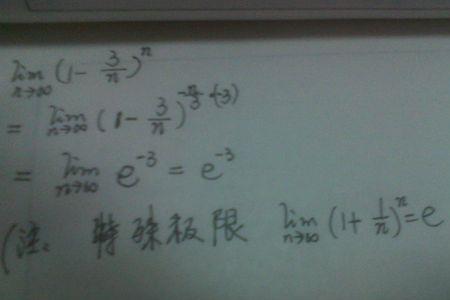 lim n→∞ (1 - 3/n)^n
= lim n→∞ (1 - 3/n)^(-n/3·(-3))
= lim n→∞ e^-3 = e^-3
(注: 特殊极限 lim n→∞ (1 + 1/n)^n = e